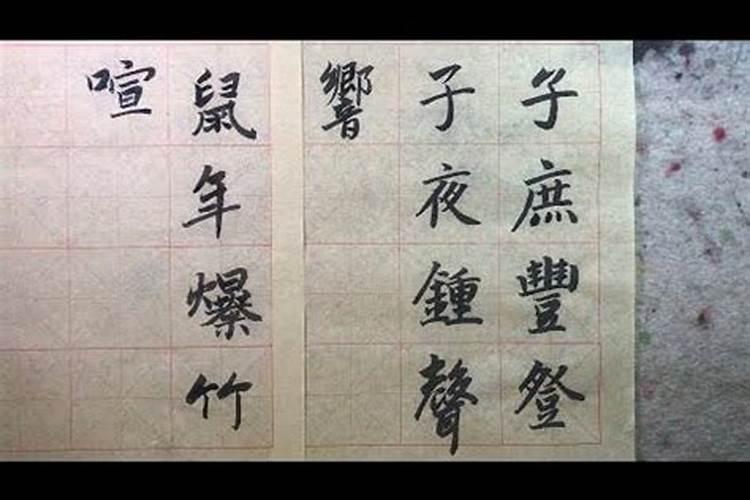 庶豐登
子夜鍾聲
響
鼠年爆竹
喧